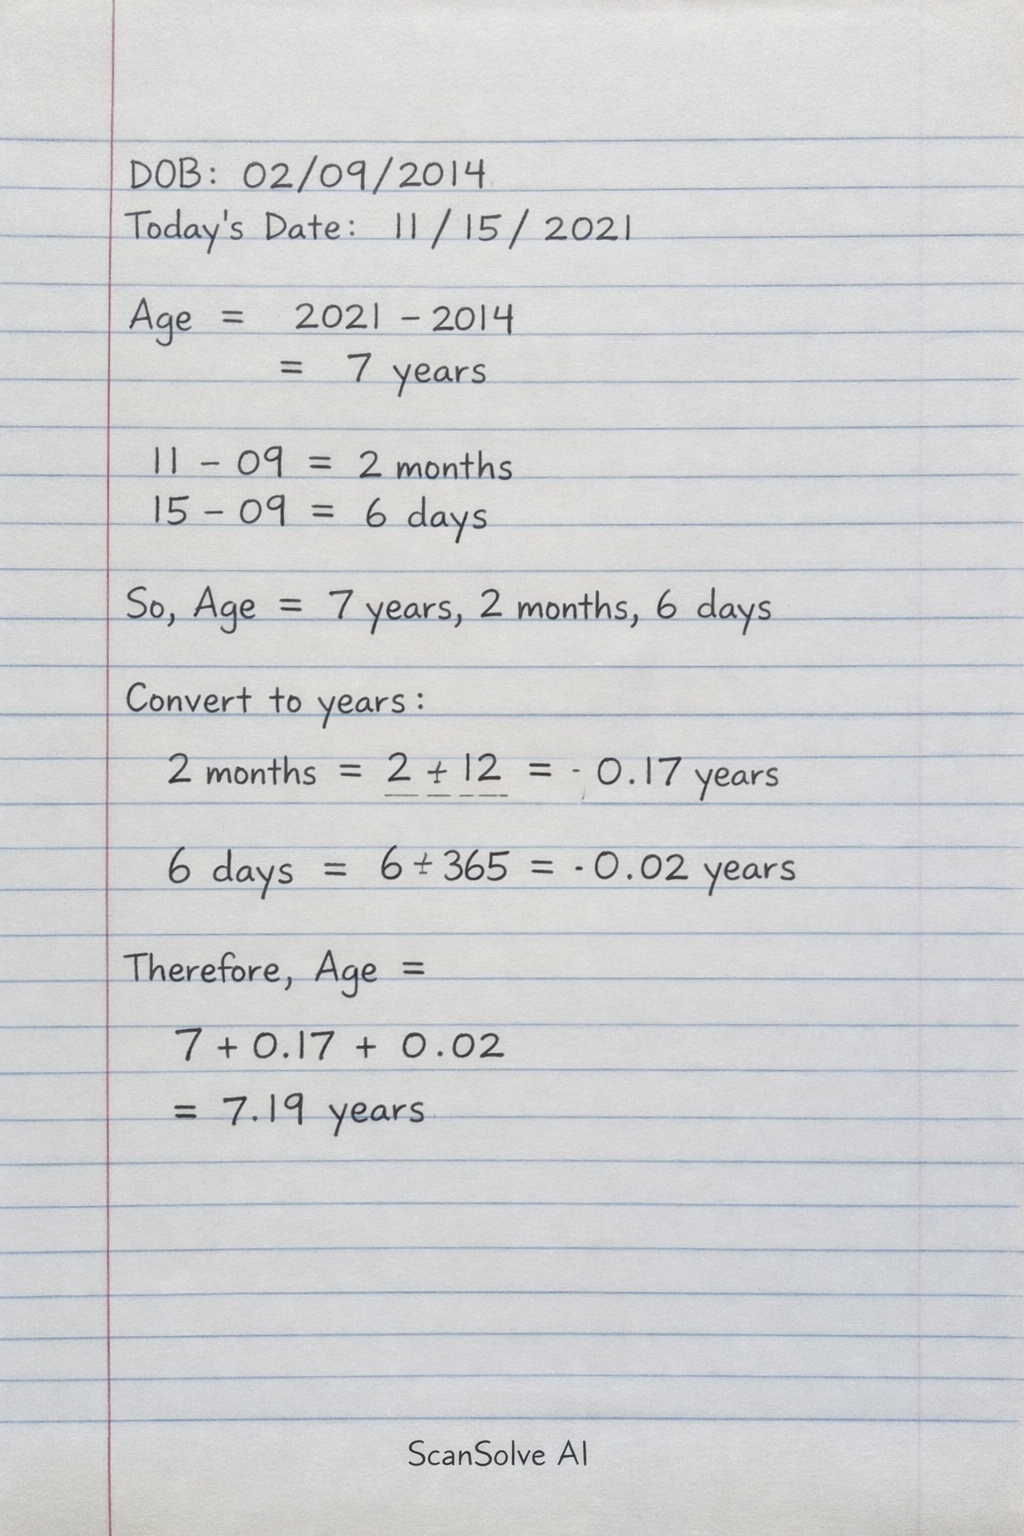 DOB: 02/09/2014
Today's Date: 11/15/2021
Age = 2021 - 2014
= 7 years
11 - 09 = 2 months
15 - 09 = 6 days
So, Age = 7 years, 2 months, 6 days
Convert to years:
2 months = 2 ÷ 12 = · 0.17 years
6 days = 6 ÷ 365 = · 0.02 years
Therefore, Age =
7 + 0.17 + 0.02
= 7.19 years
ScanSolve AI